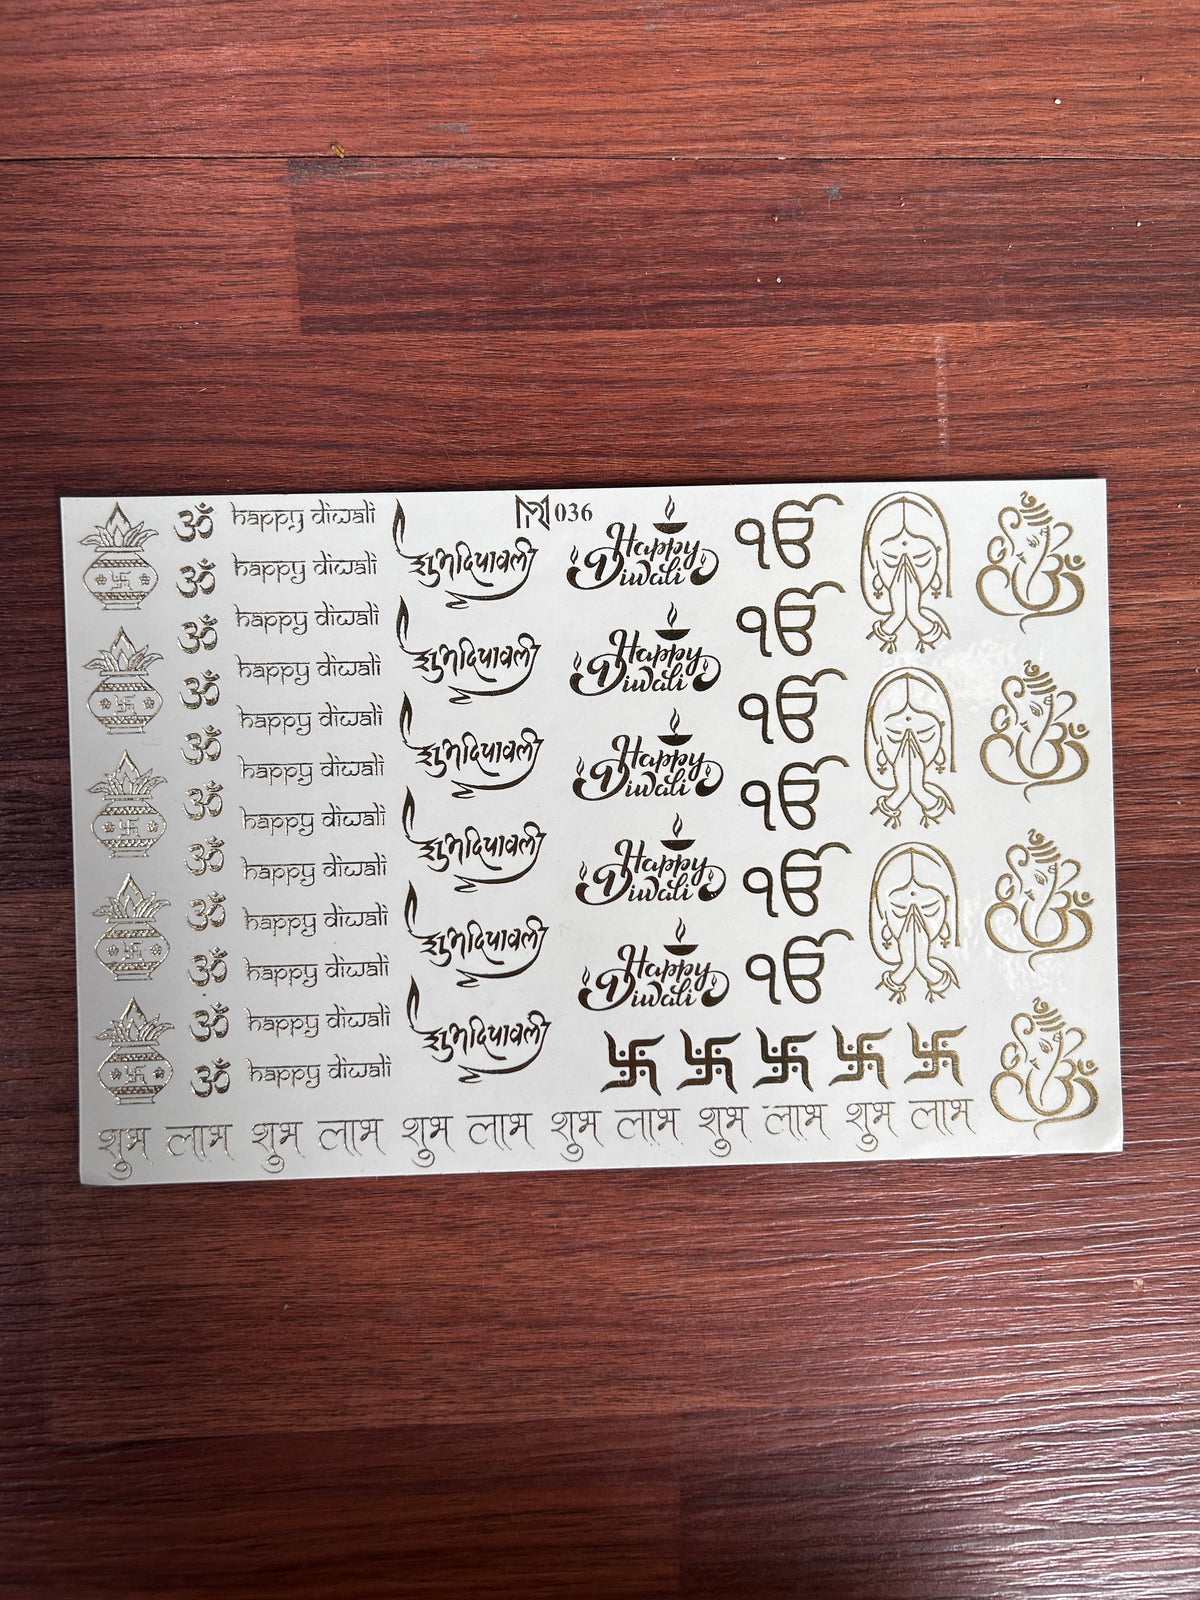 ॐ
ॐ
ॐ
ॐ
ॐ
ॐ
ॐ
ॐ
ॐ
ॐ
ॐ
happy diwali
happy diwali
happy diwali
happy diwali
happy diwali
happy diwali
happy diwali
happy diwali
happy diwali
happy diwali
happy diwali
happy diwali
शुभदिपावली
शुभदिपावली
शुभदिपावली
शुभदिपावली
शुभदिपावली
शुभदिपावली
036
Happy
Diwali
Happy
Diwali
Happy
Diwali
Happy
Diwali
Happy
Diwali
ੴ
ੴ
ੴ
ੴ
ੴ
ੴ
शुभ लाभ शुभ लाभ शुभ लाभ शुभ लाभ शुभ लाभ शुभ लाभ